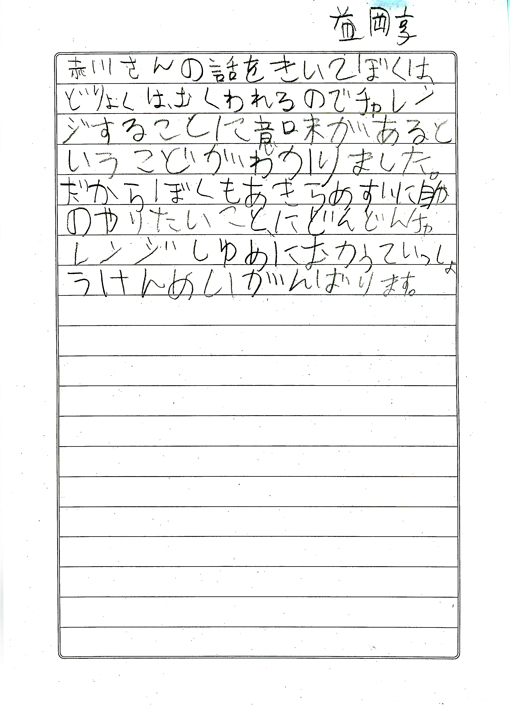 益岡享
赤川さんの話をきいてぼくは、
どりょくは、むくわれるのでチャレン
ジすることに意味があると
いうことがわかりました。
だからぼくもあきらめずに自分
のやりたいことにどんどんチャ
レンジしゆめにむかっていっしょ
うけんめいがんばります。